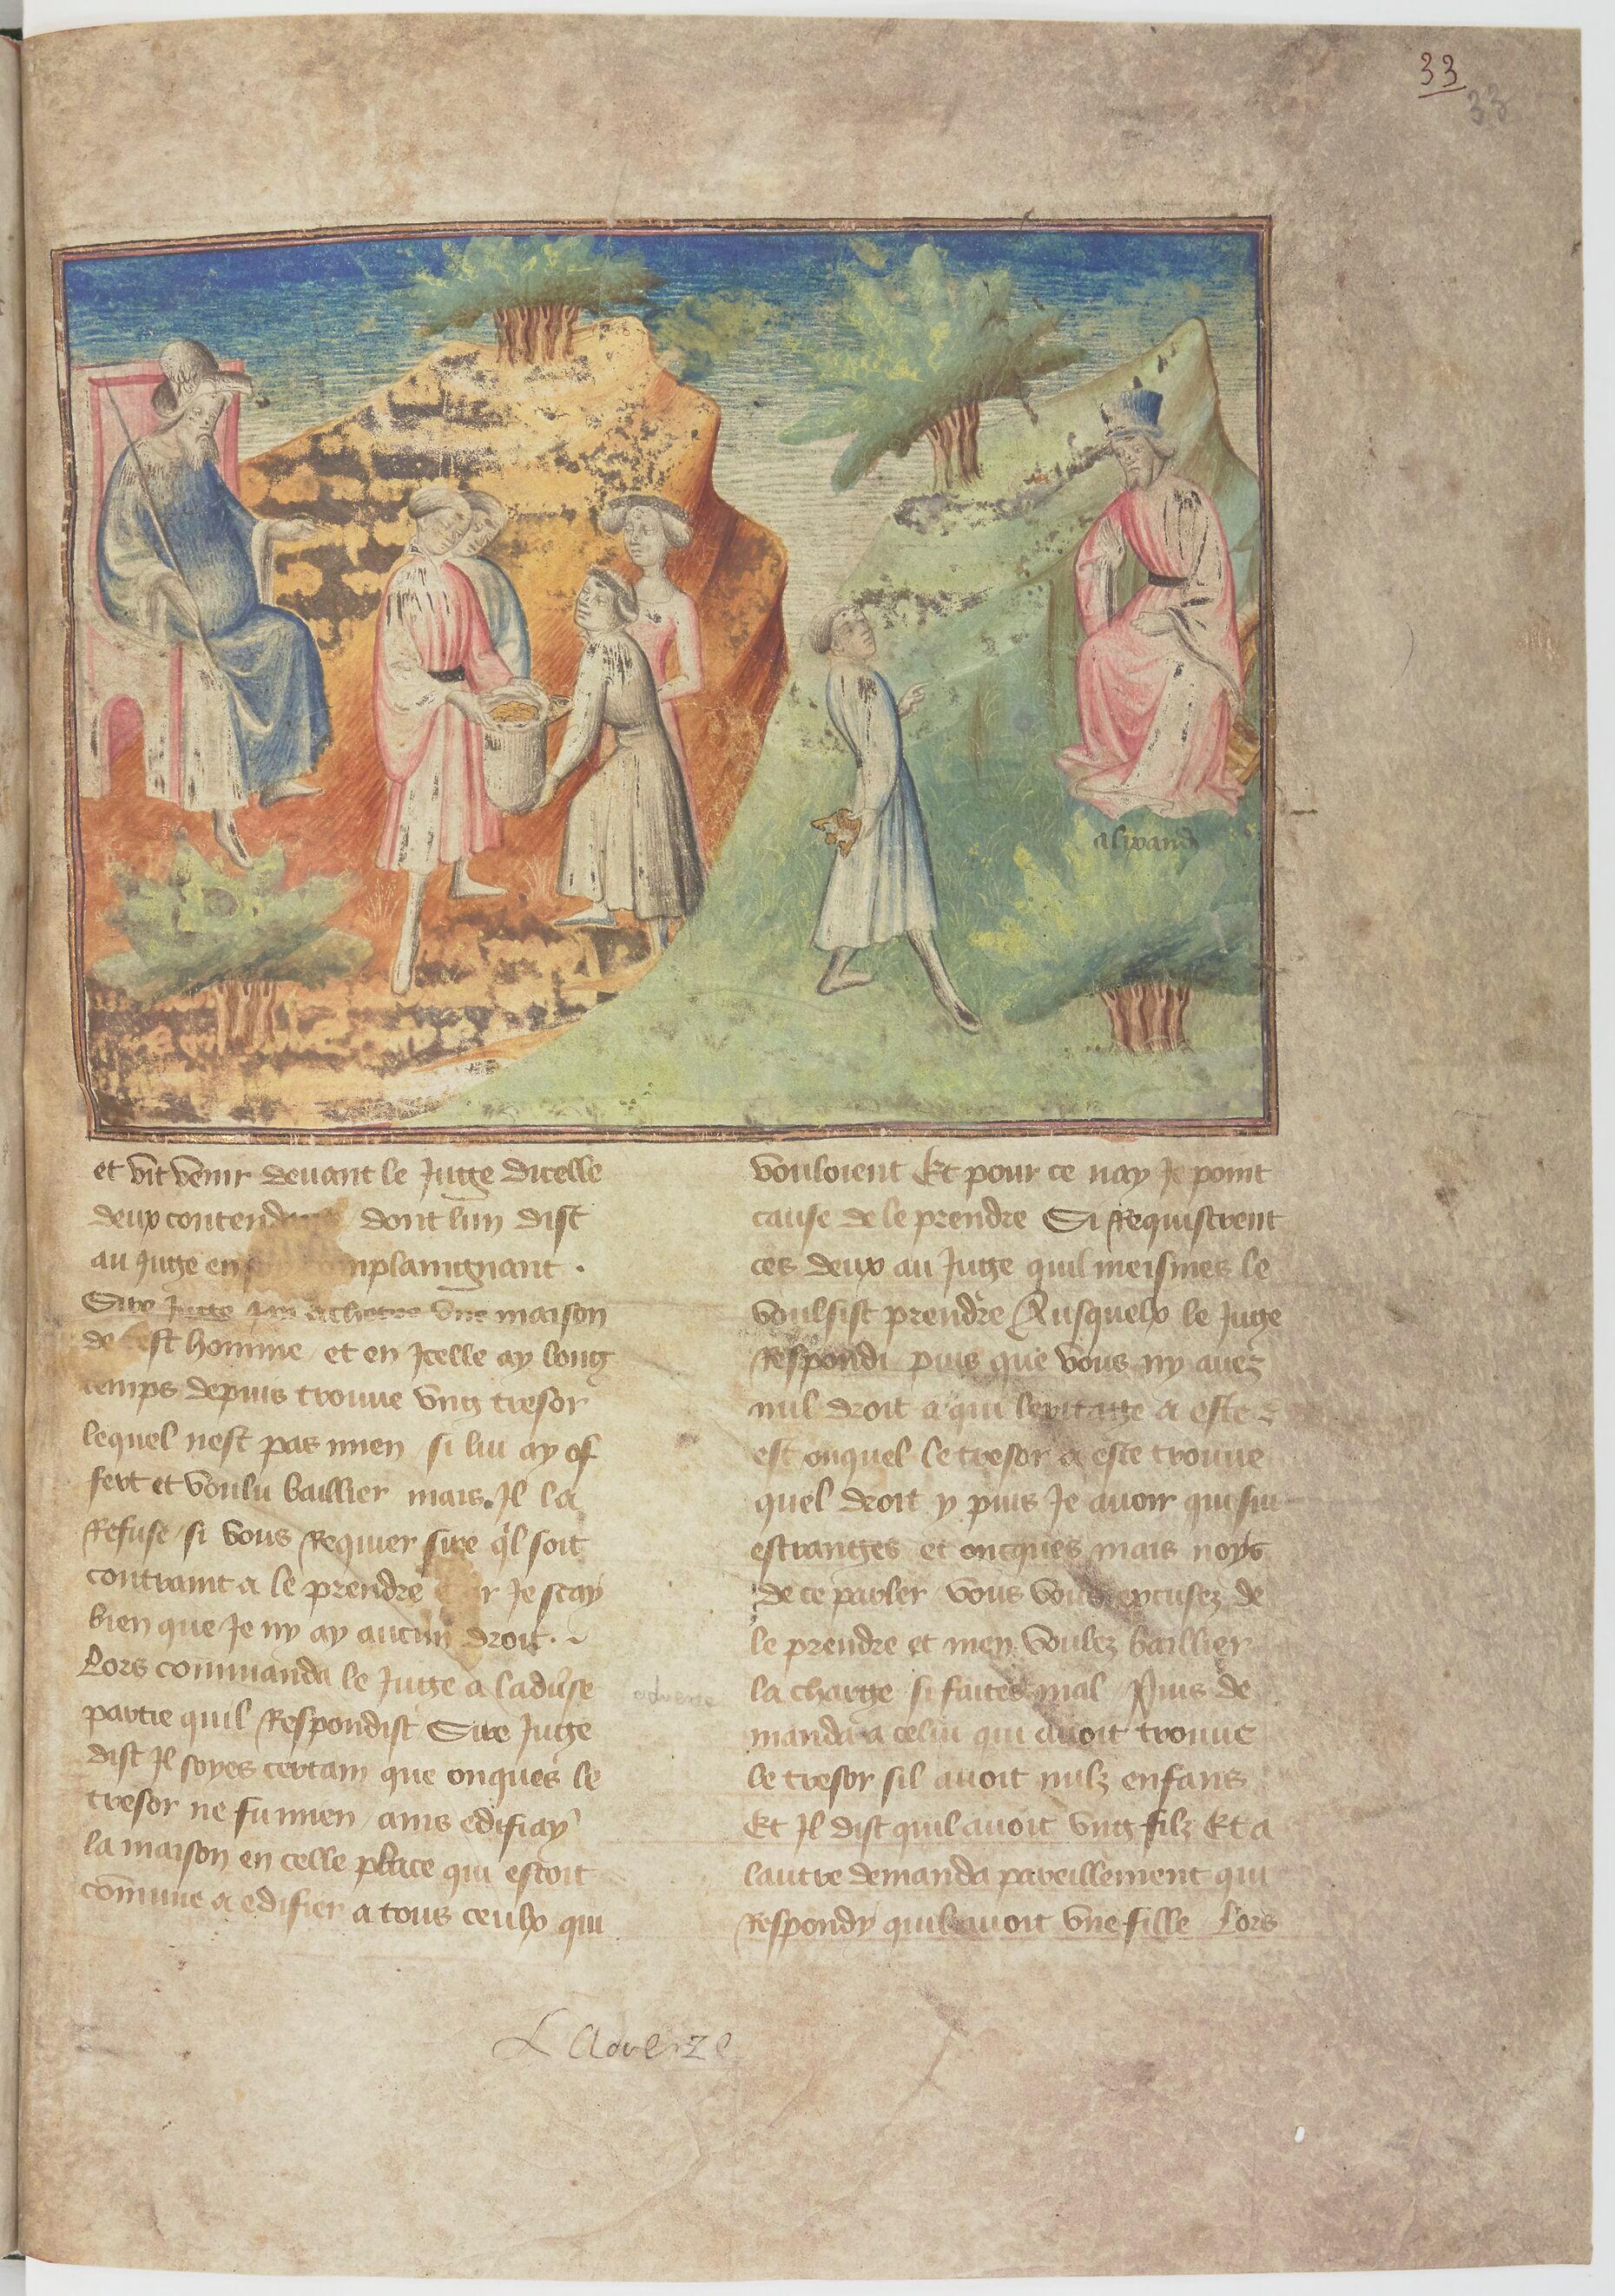 33
33
alixand
et vit venir devant le Juge dicelle
deux contendans dont lun dist
au Juge en complaingnant .
Sire Juge Jay achetee une maison
de cest homme / et en Jcelle ay long
temps depuis trouve ung tresor
lequel nest pas mien / si lui ay of
fert et voulu baillier mais . Jl la
Refuse / si vous Requier sire ql soit
contraint a le prendre car Je scay
bien que Je ny ay aucun droit . ~
Lors commanda le Juge a ladverse
partie quil Respondist Sire Juge
dist Jl soyes certain que onques le
tresor ne fu mien / ains edifiay
la maison en celle place qui estoit
commune a edifier a tous ceulx qui
adverse
vouloient Et pour ce nay Je point
cause de le prendre Si Requistrent
ces deux au Juge quil meismes le
voulsist prendre Ausquelx le Juge
Respondi puis que vous ny avez
nul droit a qui leritage a este
est onquel le tresor a este trouve
quel droit y puis Je avoir qui sui
estranges et oncques mais noys
de ce parler vous vous excusez de
le prendre et men voulez baillier
la charge si faites mal Puis de
manda a celui qui avoit trouve
le tresor sil avoit nulz enfans
Et Jl dist quil avoit ung filz Et a
lautre demanda pareillement qui
Respondy quil avoit une fille Lors
L adverze